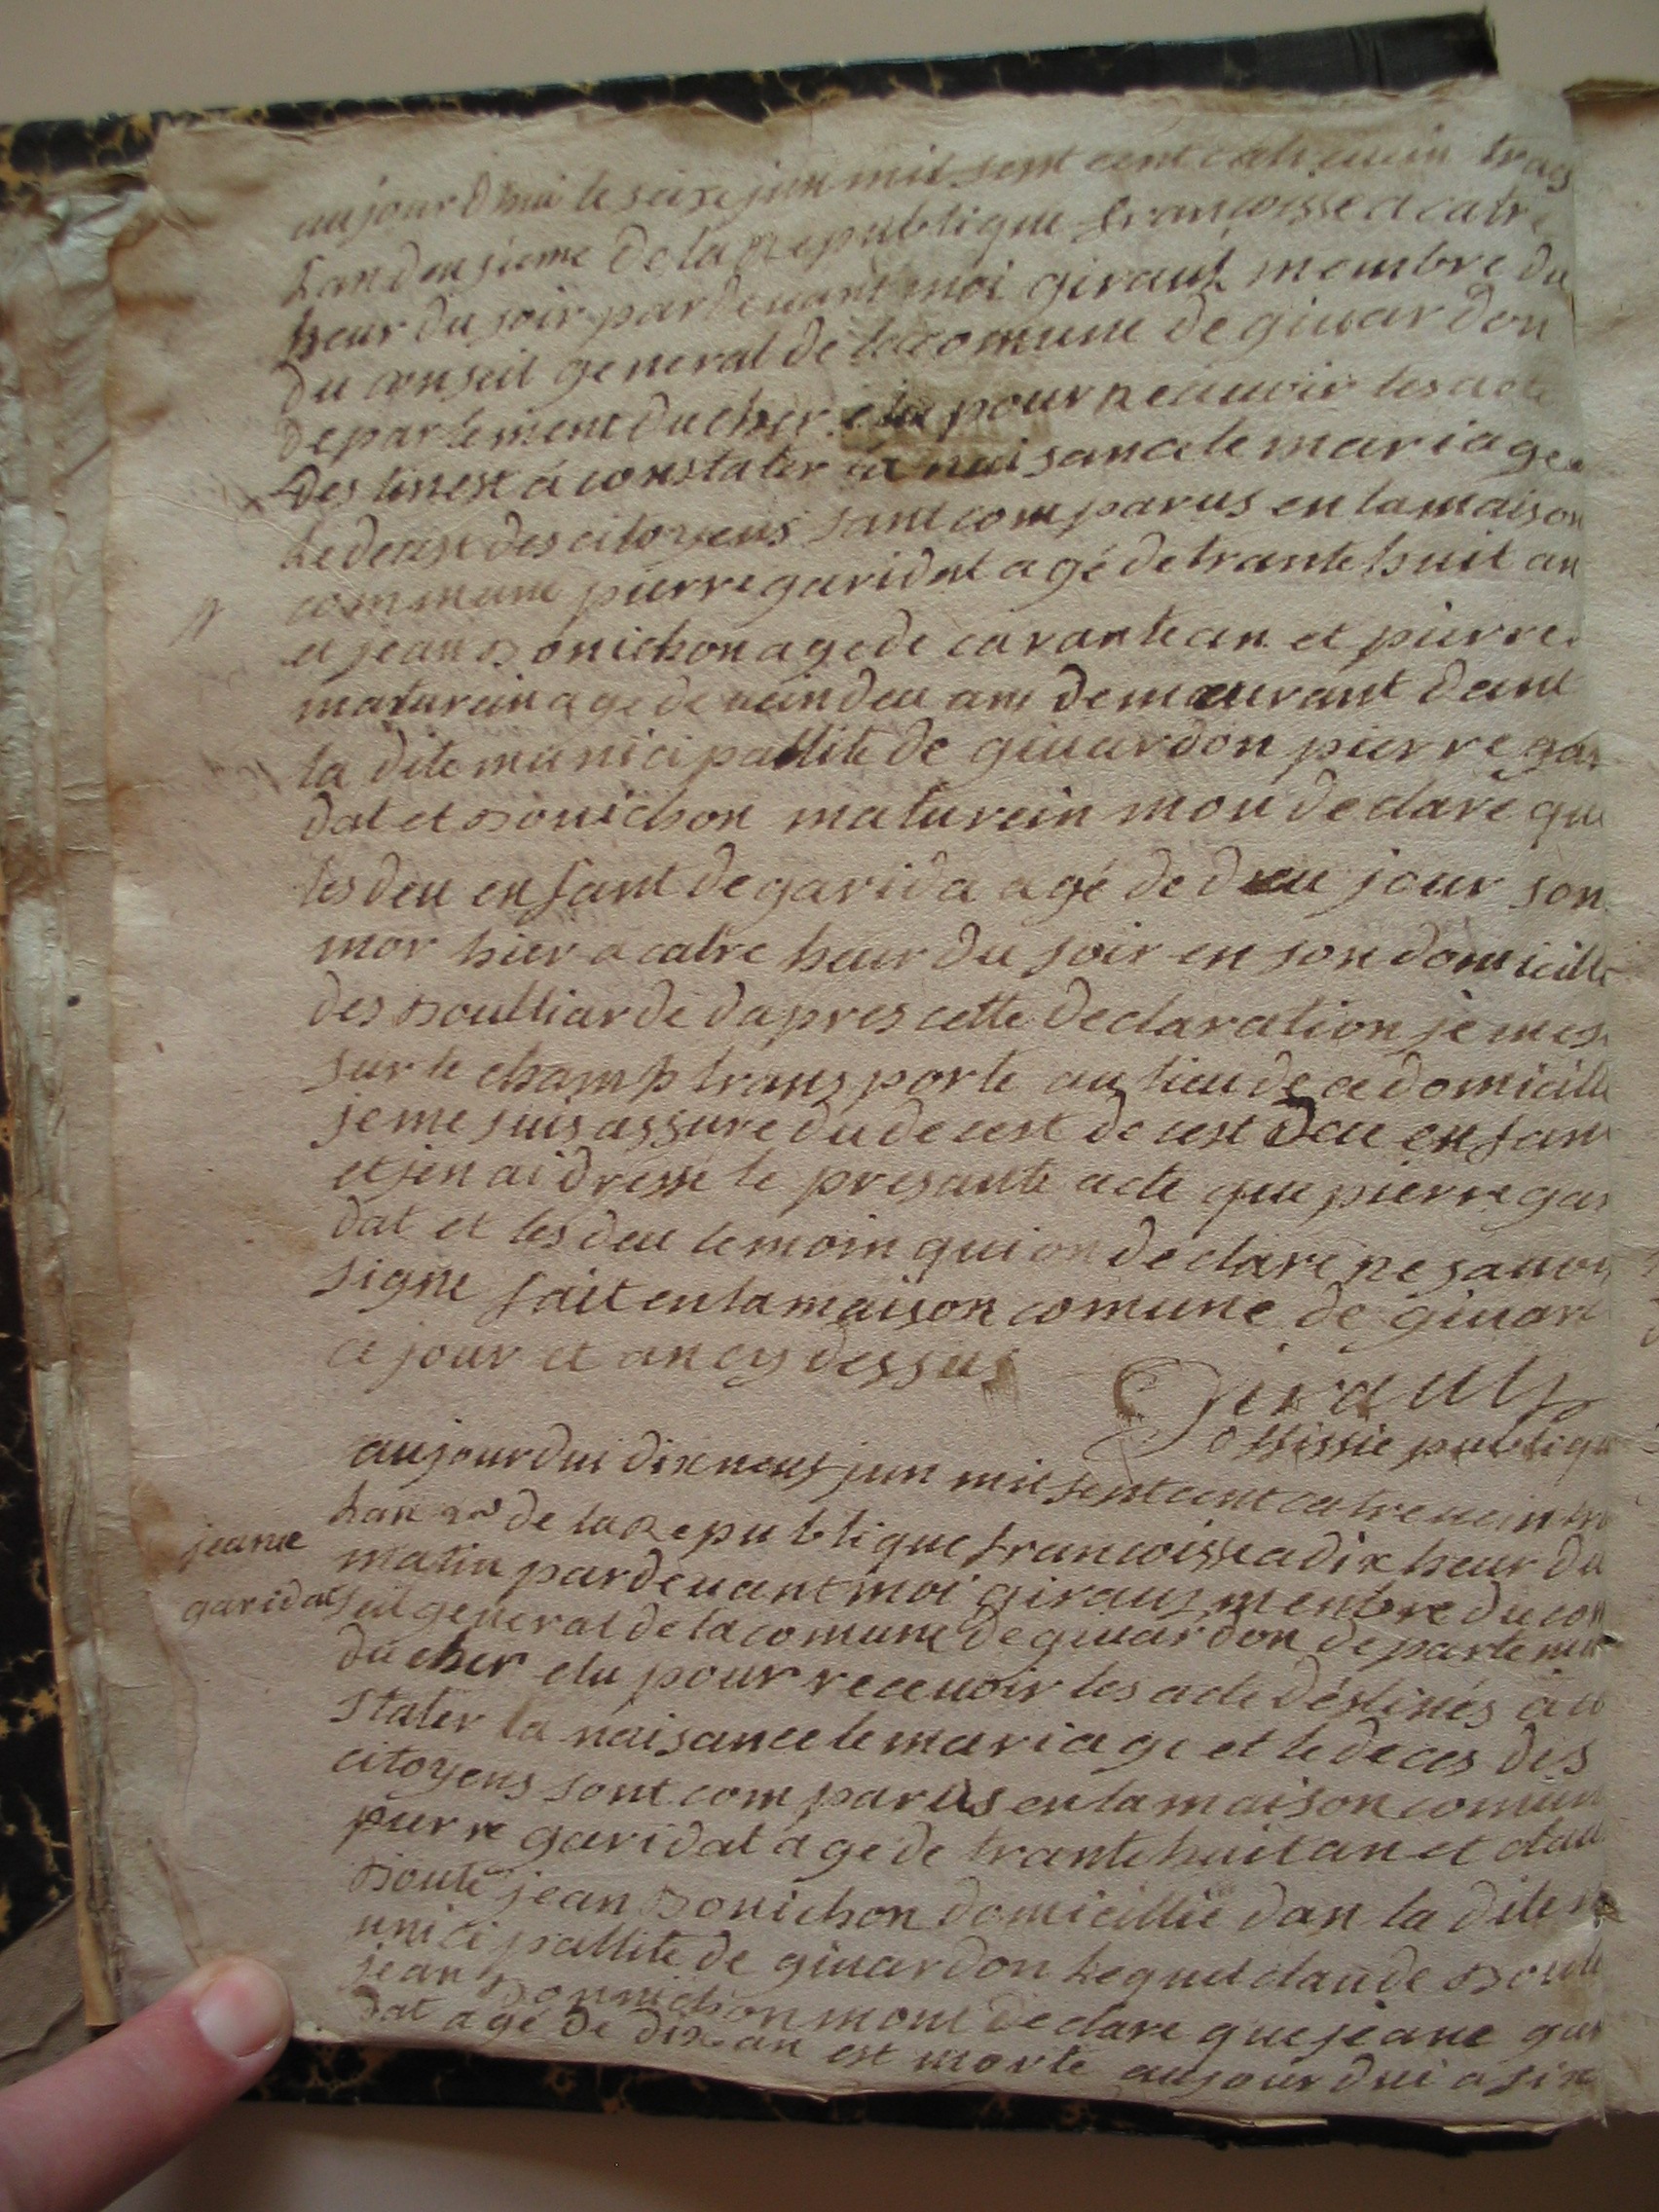 aujourdhui le seize juin mil sent cent catrevein trais
Lan deusieme de la Republique francoisse a catre
heur du soir pardevant moi giraut membre du
du conseil general de la comune de givardon
departement du cher elu pour recuvoir les acte
destinest a constater la naisance le mariage
le decest des citoyens sant comparus en la maison
commune pierre garidat agé de trante huit an
et jean Bonichon age de carante an et pierre
maturein age de vein deu ans demeurant dant
la dite municipallite de givardon pierre gari
dat et Bonichon maturein mon declaré que
les deu enfant de garida agé de deu jour son
mor hier a catre heur du soir en son domicille
des Boulliarde dapres cette declaration je mes
sur le champ transporte au lieu de ce domicille
je me suis assure du decest de cest deu enfant
et jen ai dressé le presante acte que pierre gari
dat et les deu temoin qui on declaré ne savoir
signe fait en la maison comune de givard
ce jour et an cy dessus
Girault
offissié publique
aujourdui dixneuf juin mil sent cent catrevein tr
Lan 2e de la Republique francoisse a dix heur du
jeanne
matin pardevant moi giraut menbre du con
garidat
seil general de la comune de givardon departement
du cher elu pour recevoir les acte déstinés à co
stater la naisance le mariage et le deces des
citoyens sont comparus en la maison comun
pierre garidat age de trante huit an et claud
Boute jean Bonichon domicillié dan la dite m
unicipallite de givardon Lequel claude Boute
jean Bonnichon mont declare que jeane gari
dat agé de dix an est morte aujourdui a six